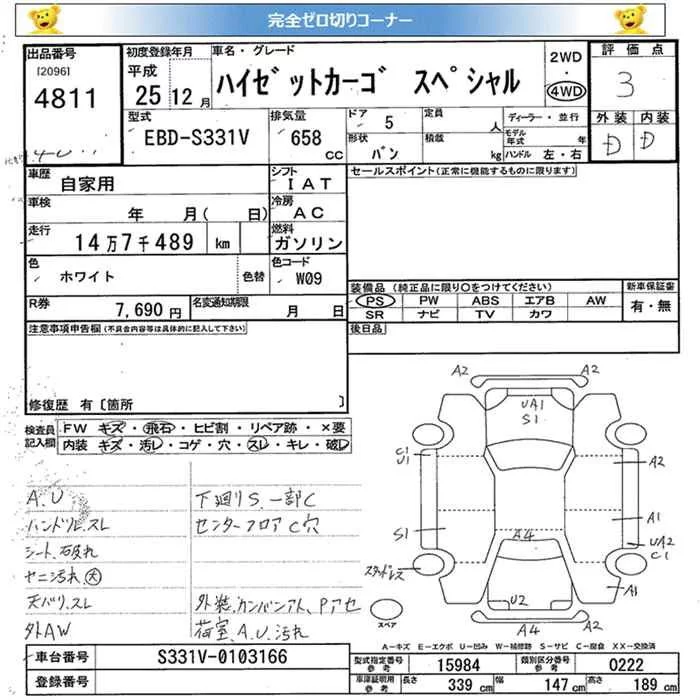 完全ゼロ切りコーナー
出品番号
[2096]
4811
初度登録年月
平成
25 12月
車名・グレード
ハイゼットカーゴ スペシャル
2WD
・
4WD
評価点
3
外装 内装
D D
型式
EBD-S331V
排気量
658
CC
ドア
5
形状
バン
定員
人
積載
kg
ディーラー・並行
モデル年式 年
ハンドル 左・右
車歴
自家用
シフト
IAT
車検
年 月( 日)
冷房
AC
走行
14万7千489 km
燃料
ガソリン
色
ホワイト
色替
色コード
W09
R券
7,690円
名変通知期限
月 日
セールスポイント(正常に機能するものに限ります)
装備品 (純正品に限り○をつけてください)
PS PW ABS エアB AW
SR ナビ TV カワ
新車保証書
有・無
注意事項申告欄(不具合内容等は具体的に記入して下さい)
後日品
修復歴 有〔箇所 〕
検査員記入欄
FW キズ・飛石・ヒビ割・リペア跡・×要
内装 キズ・汚レ・コゲ・穴・スレ・キレ・破レ
A.U
ハンドル.スレ
シート.破れ
ヤニ汚れ 大
天バリ.スレ
外AW
下廻りS.一部C
センターフロアC穴
外装.カンバンアト、Pアセ
荷室.A.U.汚れ
A2 A2
UA1
S1
C1
U1
A2
S1
A4
A1
UA2
C1
スタッドレス
A1
U2
スペア
A2
A4
A=キズ E=エクボ U=凹み W=補修跡 S=サビ C=腐食 XX=交換済
車台番号
S331V-0103166
登録番号
型式指定番号
参考
15984
類別区分番号
参考
0222
車庫証明用
参考
長さ
339 cm
幅
147 cm
高さ
189 cm